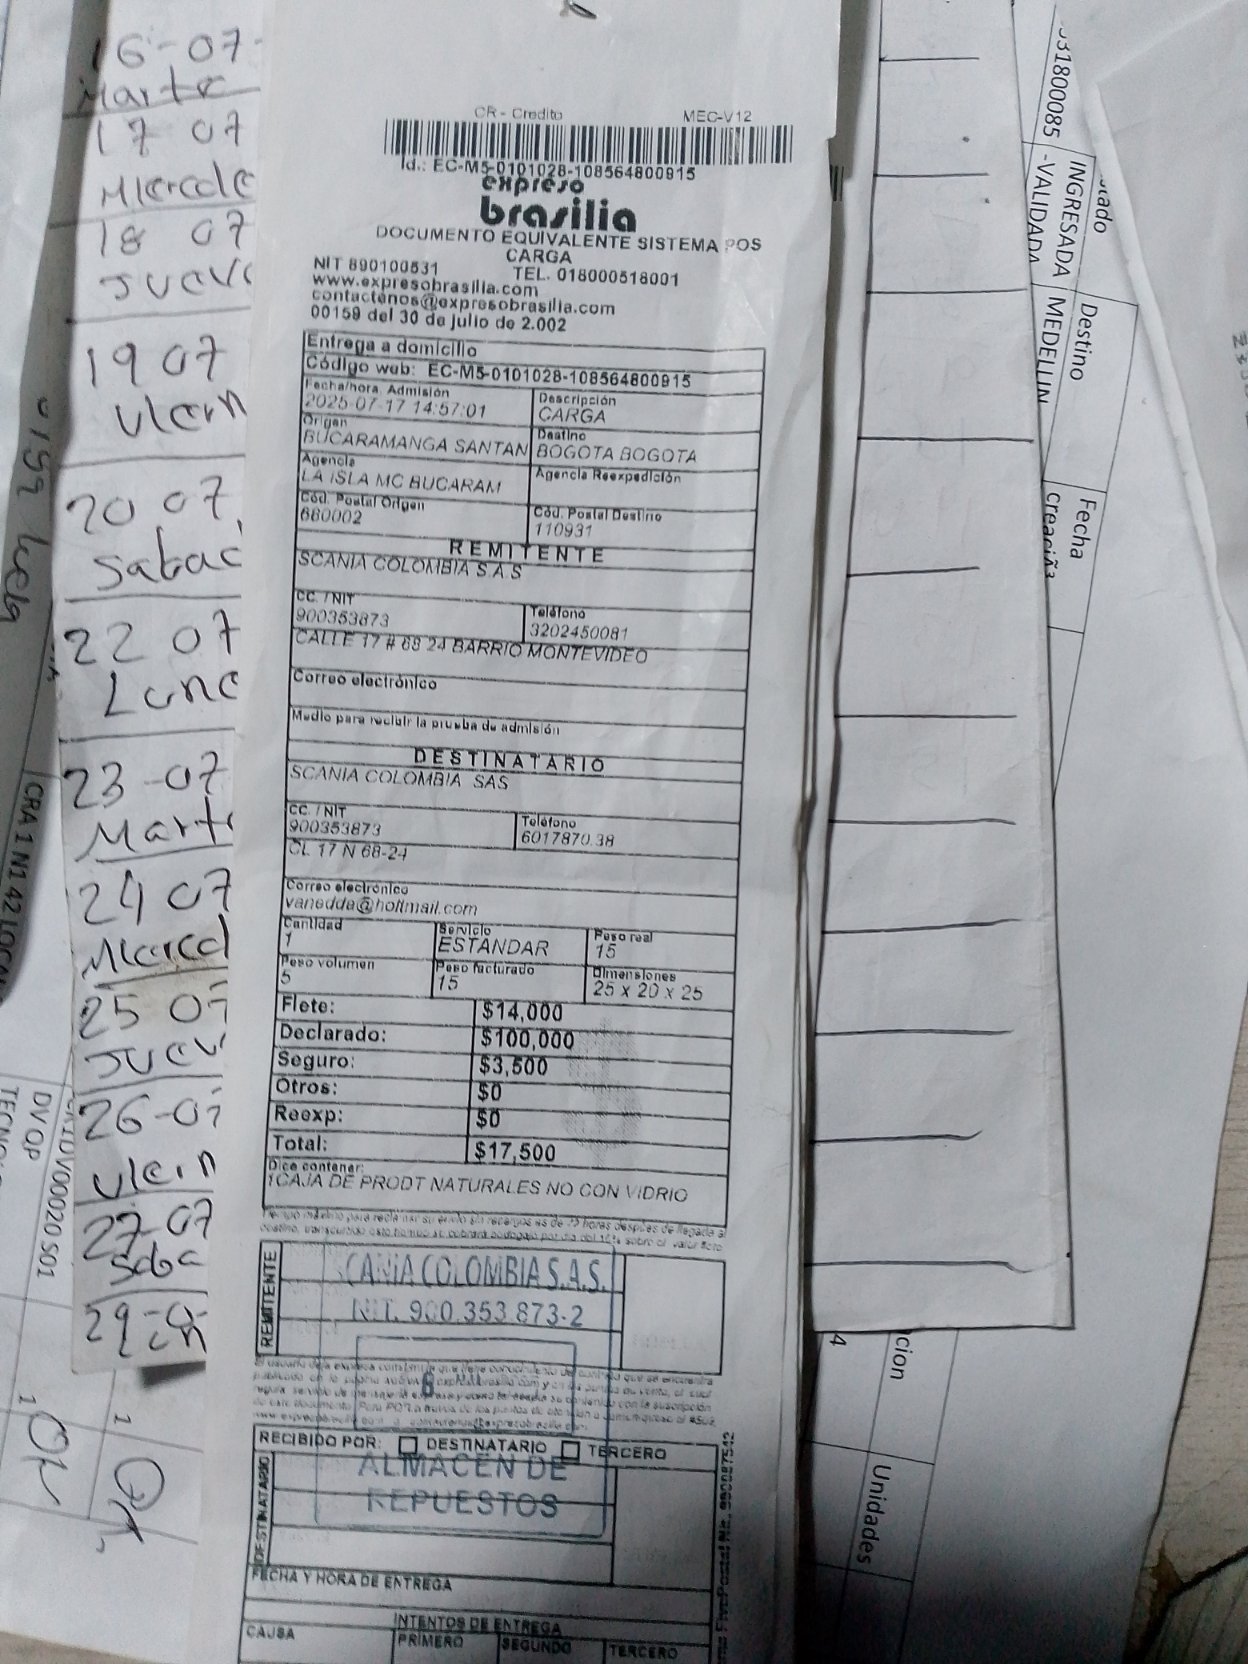 CR - Credito MEC-V12
Id.: EC-M5-0101028-108564800915
expreso
brasilia
DOCUMENTO EQUIVALENTE SISTEMA POS
CARGA
NIT 890100531 TEL. 018000518001
www.expresobrasilia.com
contactenos@expresobrasilia.com
00159 del 30 de julio de 2.002
Entrega a domicilio
Código web: EC-M5-0101028-108564800915
Fecha/hora. Admisión Descripción
2025-07-17 14:57:01 CARGA
Origen Destino
BUCARAMANGA SANTAN BOGOTA BOGOTA
Agencia Agencia Reexpedición
LA ISLA MC BUCARAM
Cód. Postal Origen Cód. Postal Destino
680002 110931
REMITENTE
SCANIA COLOMBIA S A S
CC. / NIT Teléfono
900353873 3202450081
CALLE 17 # 68 24 BARRIO MONTEVIDEO
Correo electrónico
Medio para recibir la prueba de admisión
DESTINATARIO
SCANIA COLOMBIA SAS
CC. / NIT Teléfono
900353873 6017870.38
CL 17 N 68-24
Correo electrónico
vanedda@hotmail.com
Cantidad Servicio Peso real
1 ESTANDAR 15
Peso volumen Peso facturado Dimensiones
5 15 25 x 20 x 25
Flete: $14,000
Declarado: $100,000
Seguro: $3,500
Otros: $0
Reexp: $0
Total: $17,500
Dice contener:
1CAJA DE PRODT NATURALES NO CON VIDRIO
REMITENTE
SCANIA COLOMBIA S.A.S.
NIT. 900.353.873-2
RECIBIDO POR: DESTINATARIO TERCERO
ALMACEN DE
REPUESTOS
DESTINATARIO
FECHA Y HORA DE ENTREGA
INTENTOS DE ENTREGA
CAUSA PRIMERO SEGUNDO TERCERO
16-07-
Marte
17 07
Miercole
18 07
Jueve
19 07
Viern
20 07
Sabad
22 07
Lune
23-07
Marte
24 07
Miercol
25 07
Juev
26-07
Viern
27-07
Saba
29-0-
CRA 1 N1 42 LOCA
DV00020 S01
DV QP
TECNO
1
1
31800085
INGRESADA
-VALIDADA
Destino
MEDELLIN
Fecha
cion
4
Unidades